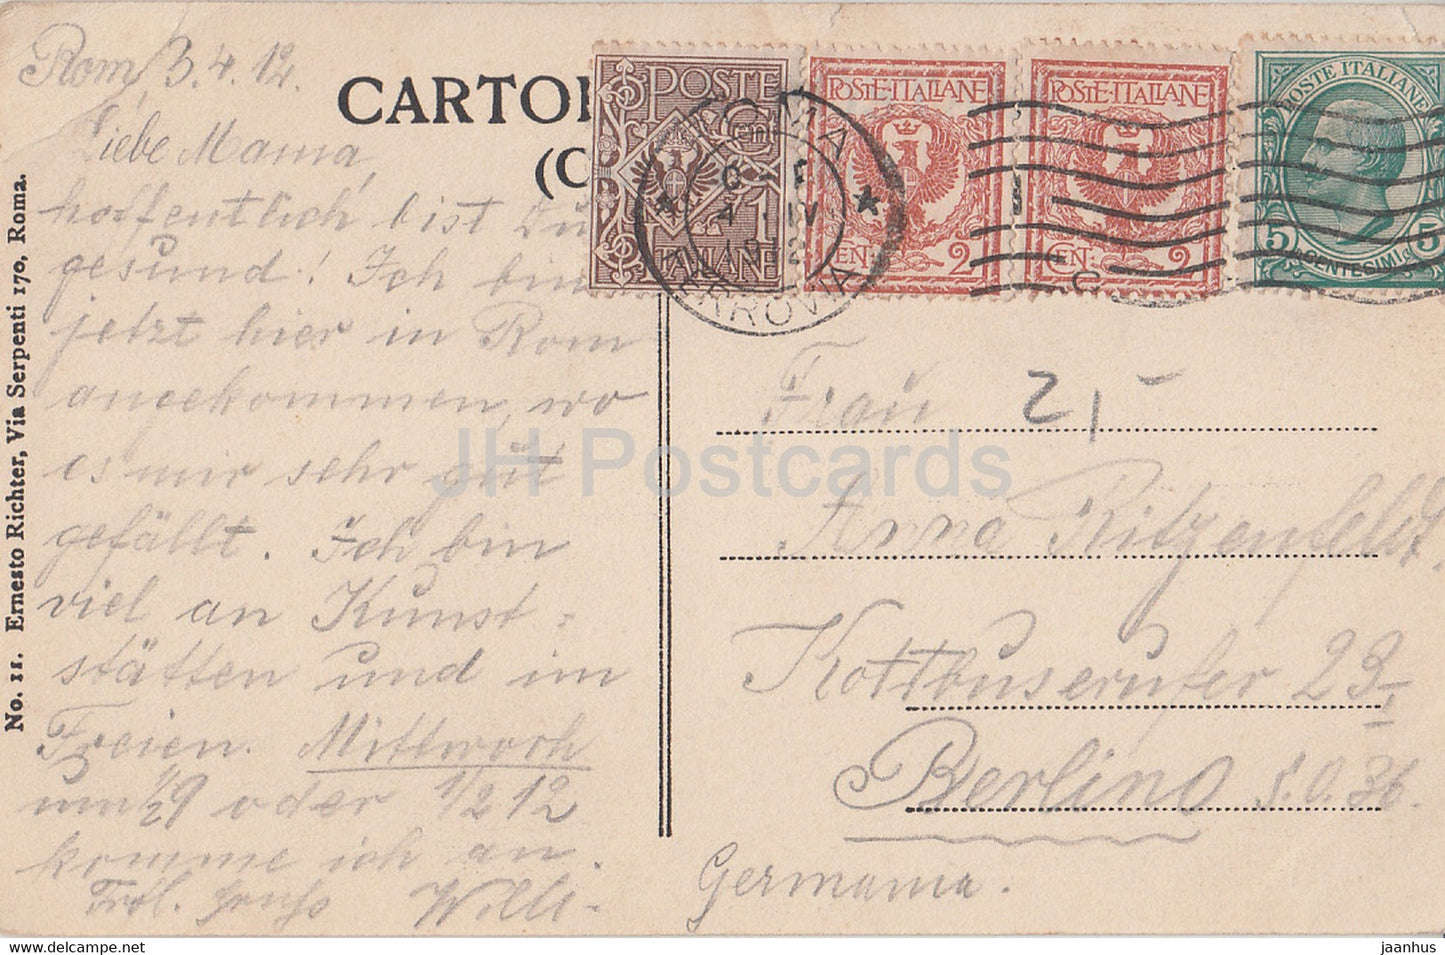 Rom, 3.4.12.
Liebe Mama,
hoffentlich bist Du
gesund! Ich bin
jetzt hier in Rom
angekommen, wo
es mir sehr gut
gefällt. Ich bin
viel an Kunst-
stätten und im
Freien. Mittwoch
um 1/2 9 oder 1/2 12
komme ich an.
Frdl. Gruß Willi-
No. 11. Ernesto Richter, Via Serpenti 170, Roma.
CARTOL
(C
POSTE
Cen. 1
ITALIANE
POSTE·ITALIANE
CEN: 2
POSTE·ITALIANE
CEN: 2
POSTE ITALIANE
5 CENTESIMI 5
ROMA
4 IV
1912
FERROVIA
2,-
Frau
Anna Ritzenfeldt.
Kottbuserufer 23 I
Berlino S.O. 36.
Germania.
JH Postcards
https://www.hippostcard.com
jaanhus